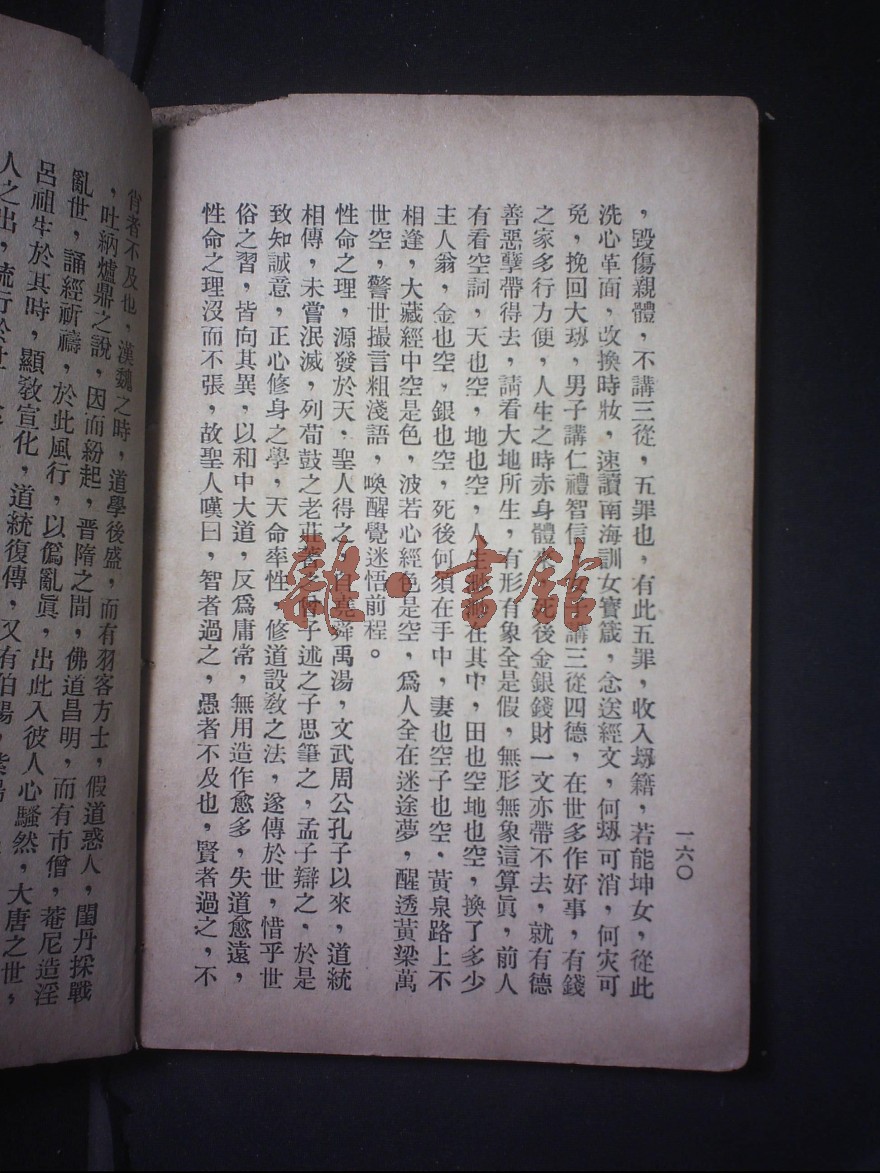 ，毀傷親體，不講三從，五罪也，有此五罪，收入刼籍，若能坤女，從此
洗心革面，改換時妝，速讀南海訓女寳箴，念送經文，何刼可消，何灾可
免，挽回大刼，男子講仁禮智信，女子講三從四德，在世多作好事，有錢
之家多行方便，人生之時赤身體來，死後金銀錢財一文亦帶不去，就有德
善惡孽帶得去，請看大地所生，有形有象全是假，無形無象這算眞，前人
有看空詞，天也空，地也空，人生渺渺在其中，田也空地也空，換了多少
主人翁，金也空，銀也空，死後何須在手中，妻也空子也空，黃泉路上不
相逢，大藏經中空是色，波若心經色是空，爲人全在迷途夢，醒透黃梁萬
世空，警世撮言粗淺語，喚醒覺迷悟前程。
性命之理，源發於天，聖人得之，自堯舜禹湯，文武周公孔子以來，道統
相傳，未嘗泯滅，列荀鼓之老莊著之曾子述之子思筆之，孟子辯之，於是
致知誠意，正心修身之學，天命率性，修道設敎之法，遂傳於世，惜乎世
俗之習，皆向其異，以和中大道，反爲庸常，無用造作愈多，失道愈遠，
性命之理沒而不張，故聖人嘆曰，智者過之，愚者不及也，賢者過之，不
一六〇
肖者不及也，漢魏之時，道學後盛，而有羽客方士，假道惑人，閨丹採戰
，吐納爐鼎之說，因而紛起，晋隋之間，佛道昌明，而有市僧，菴尼造淫
亂世，誦經祈禱，於此風行，以僞亂眞，出此入彼人心騷然，大唐之世，
呂祖生於其時，顯敎宣化，道統復傳，又有伯陽，紫陽
人之出，流行於世
雜·書館